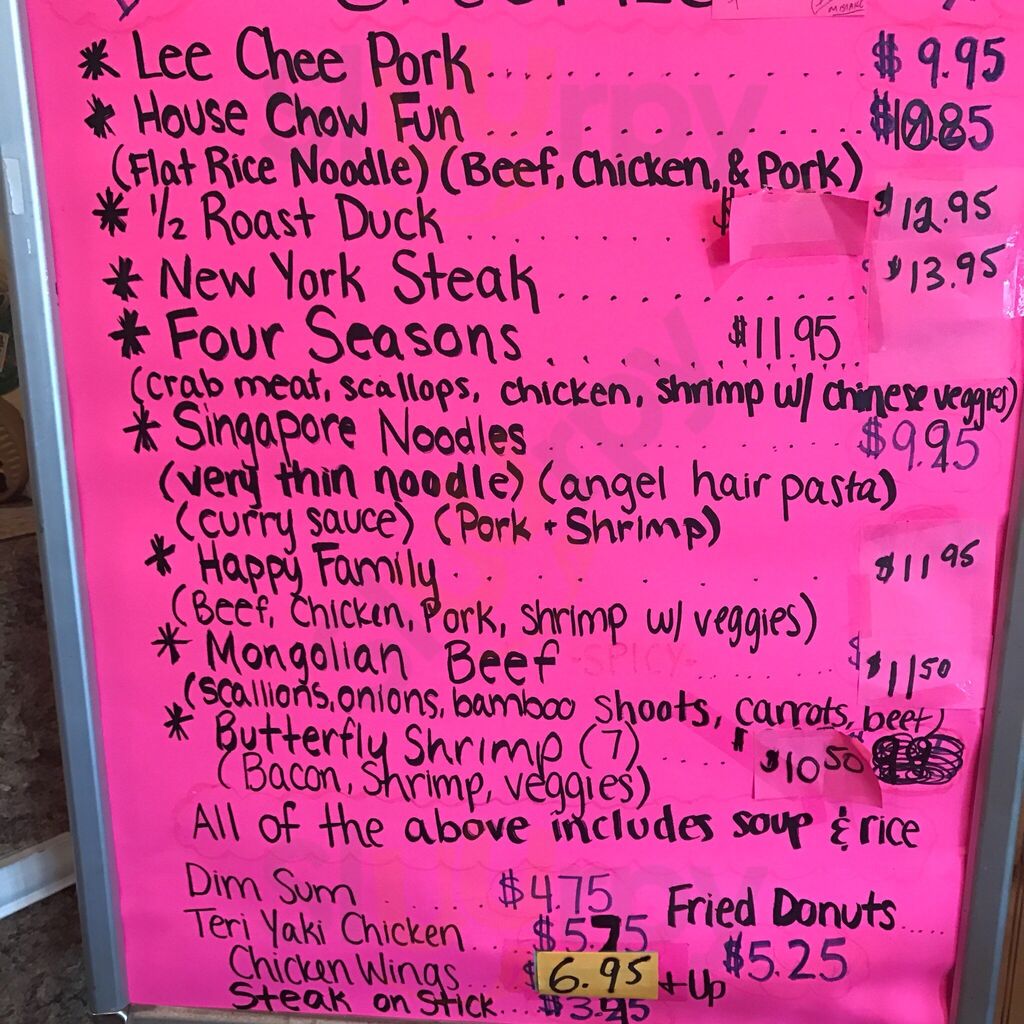 * Lee Chee Pork........... $9.95
* House Chow Fun ..............
(Flat Rice Noodle) (Beef, Chicken, & Pork)
* 1/2 Roast Duck ........... $ $12.95
* New York Steak ............. $13.95
* Four Seasons ............ $11.95
(crab meat, scallops, chicken, shrimp w/ chinese veggies)
* Singapore Noodles ............. $9.95
(very thin noodle) (angel hair pasta)
(curry sauce) (Pork + Shrimp)
* Happy Family........ $11.95
(Beef, Chicken, Pork, shrimp w/ veggies)
* Mongolian Beef -SPICY- ........ $ $11.50
(scallions, onions, bamboo shoots, carrots, beef)
* Butterfly Shrimp (7) ...... $10.50
(Bacon, Shrimp, veggies)
All of the above includes soup & rice
Dim Sum ........ $4.75
Teri Yaki Chicken.... $5.75
Chicken Wings .... $6.95 + Up
Steak on Stick...
Fried Donuts.....
$5.25